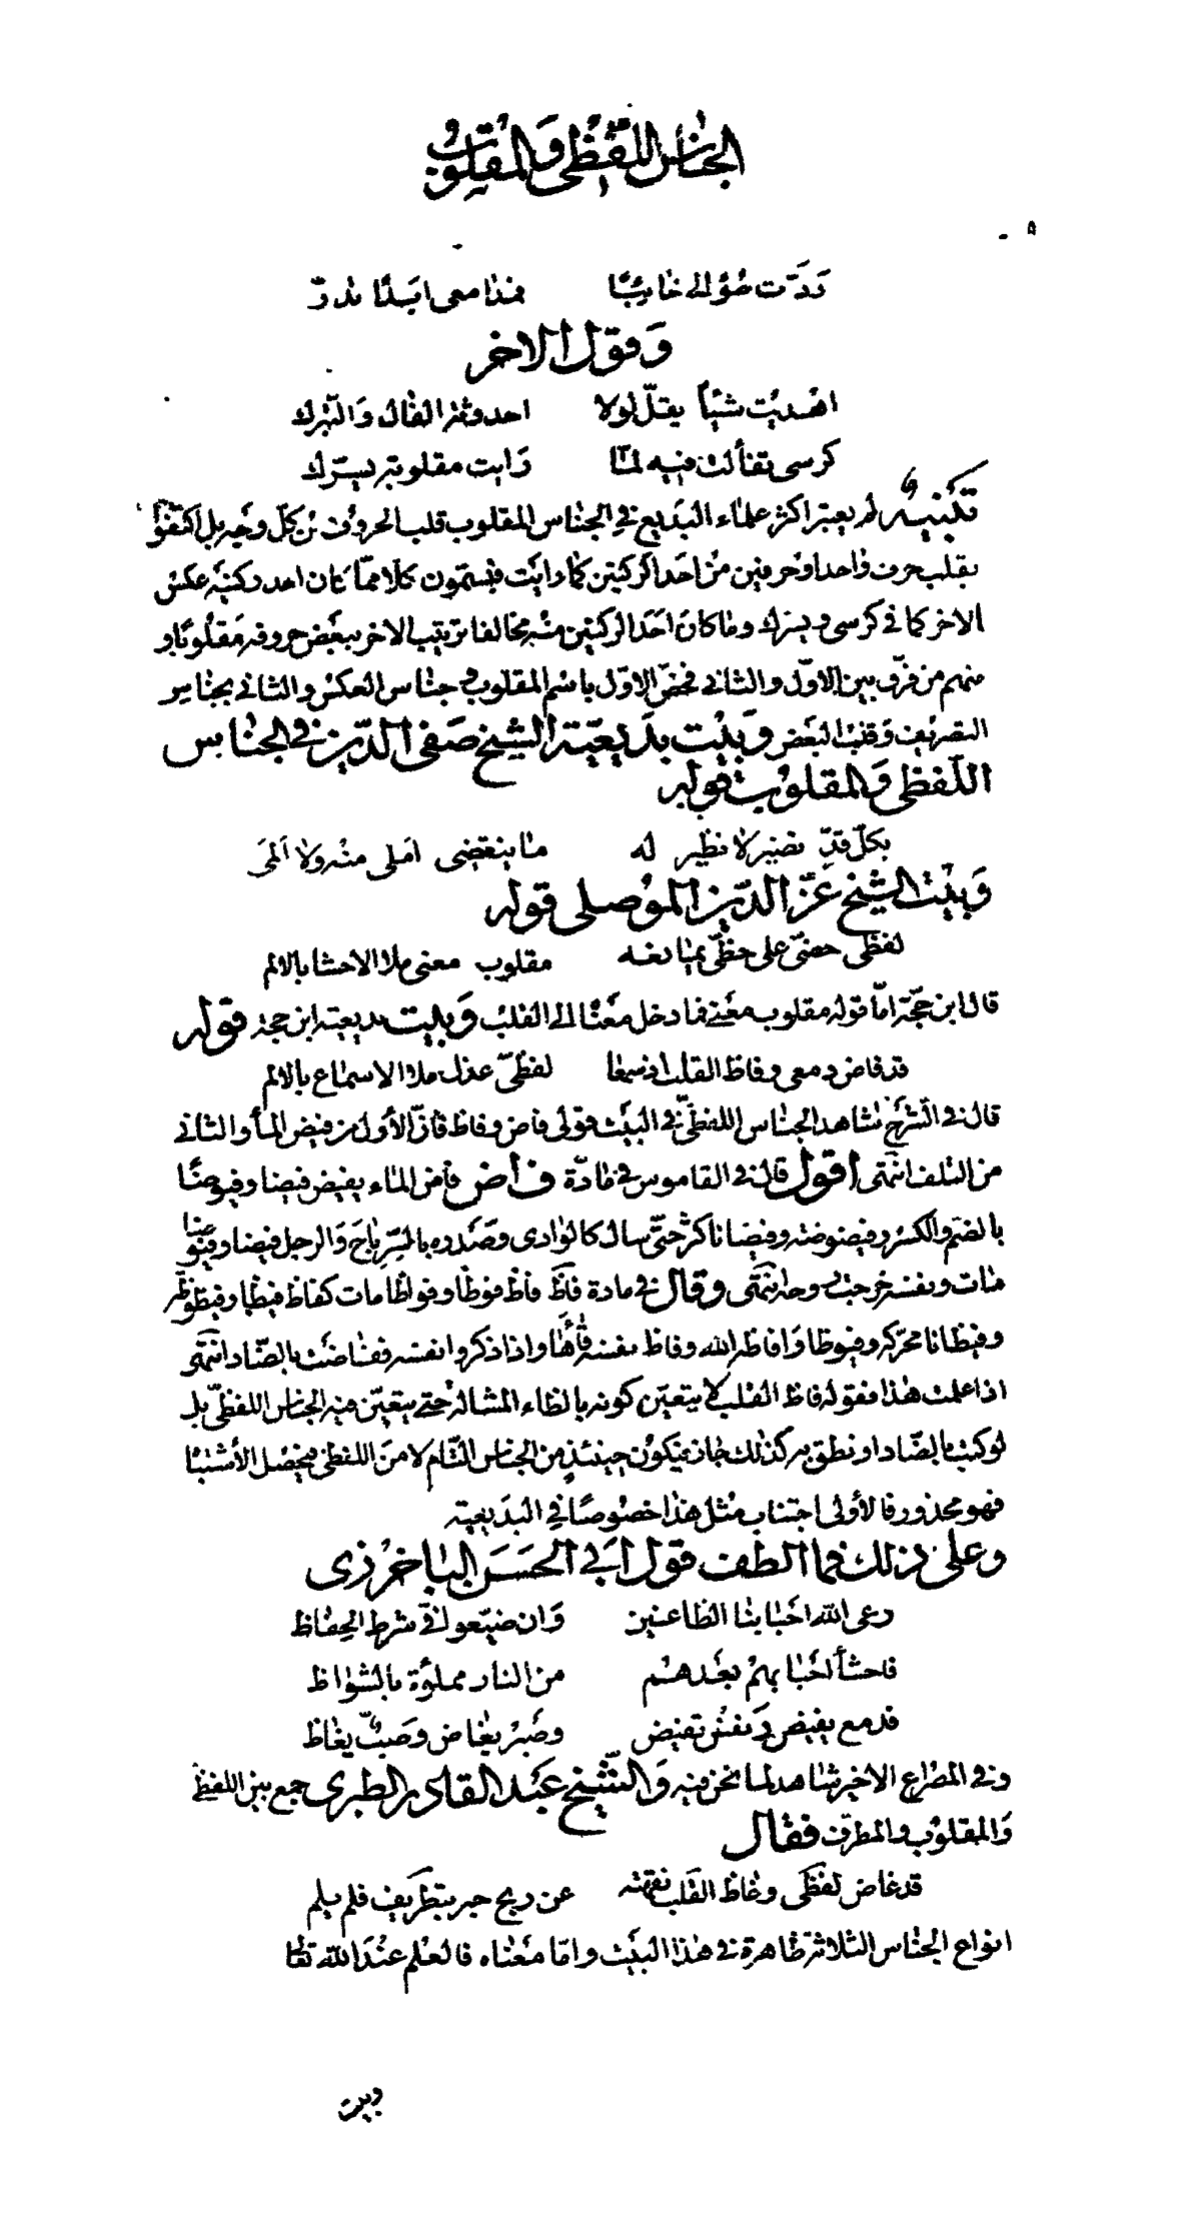 الجناس اللفظى والمقلوب
٥
ردّت سؤالى خائبا فمدامعى ابدا تدرّ
وقول الاخر
اهديت شيئا يقلّ لولا احدوثة الفال والتبرك
كرسى تفألت فيه لما رايت مقلوبه يسرّك
تنبيه لم يعتبر اكثر علماء البديع فى الجناس المقلوب قلب الحروف من كلّ وجه بل اكتفوا
بقلب حرف واحد او حرفين من احد الركنين كما رايت فيسمّون كلا ممّا كان احد ركنيه عكس
الاخر كما فى كرسى ويسرك وما كان احد الركنين منه مخالفا ترتيب الاخر ببعض حروفه مقلوبا و
منهم من فرّق بين الاوّل والثانى فخصّ الاوّل باسم المقلوب وجناس العكس والثانى بجناس
التصريف وقلب البعض وبيت بديعيّة الشيخ صفى الدّين فى الجناس
اللفظى والمقلوب قوله
بكلّ قدّ نضير لا نظير له ما ينقضى املى منه ولا المى
وبيت الشيخ عزّ الدّين الموصلى قوله
لفظى حضىّ على حظّى يمانعه مقلوب معنى ملا الاحشا بالالم
قال ابن حجّة امّا قوله مقلوب معنى فما دخل معنا الى القلب وبيت بديعية ابن حجة قوله
قد فاض دمعى وفاظ القلب اذ سمعا لفظىّ عذل ملا الاسماع بالالم
قال فى الشرح شاهد الجناس اللفظىّ فى البيت قولى فاض وفاظ فانّ الأول من فيض الماء والثانى
من التلف انتهى اقول قال فى القاموس فى مادّة فاض فاض الماء يفيض فيضا وفيوضا
بالضم والكسر وفيضوضة وفيضانا كثر حتّى سال كالوادى وصدره بالسّر باح والرجل فيضا وفيوضا
مات ونفسه خرجت روحه انتهى وقال فى مادة فاظ فاظ فوظا وفواظا مات كفاظ فيظا وفيظوظة
وفيظانا محرّكة وفيوظا وافاظه الله وفاظ نفسه قأها واذا ذكروا نفسه ففاضت بالضّاد انتهى
اذا علمت هذا فقوله فاظ القلب لا يتعيّن كونه بالظاء المشالة حتى يتعيّن فيه الجناس اللفظىّ بل
لو كتب بالضّاد او نطق به كذلك جاز فيكون حينئذ من الجناس التّام لا من اللفظى فيحصل الأشتباه
فهو محذور فالأولى اجتناب مثل هذا خصوصا فى البديعية
وعلى ذلك فما الطف قول ابى الحسن الباخرزى
رعى الله احبابنا الظاعنين وان ضيّعوا فىّ شرط الحفاظ
فاحشأ احبابهم بعدهم من النار مملوّة بالشواظ
فدمع يفيض ونفس تفيض وصبر يغاض وصبّ يغاظ
وفى المصراع الاخير شاهد لما نحن فيه والشّيخ عبد القادر الطبرى جمع بين اللفظى
والمقلوب والمطرّف فقال
قد غاض لفظى وغاظ القلب نفقته عن ريح حبر بتطريف فلم يلم
انواع الجناس الثلاثة ظاهرة فى هذا البيت وامّا معناه فالعلم عند الله تعا
وبيت